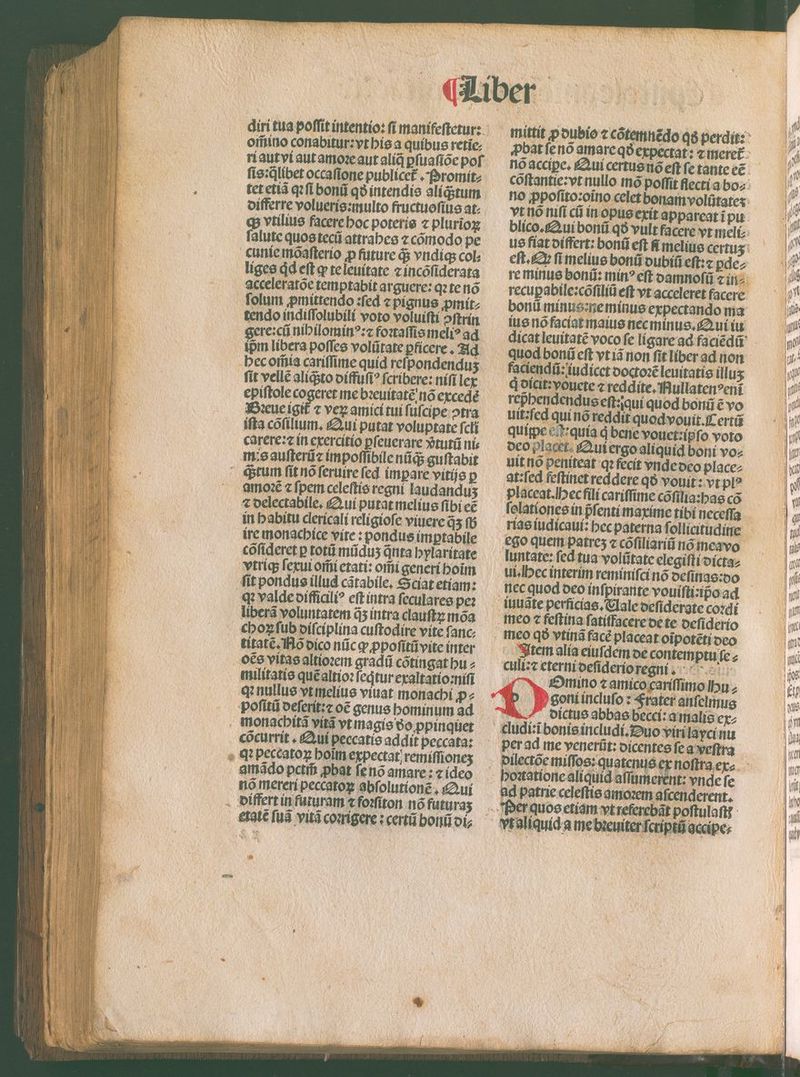 ¶Liber
diri tua possit intentio: si manifestetur:
om̄ino conabitur: vt his a quibus retie⸗
ri aut vi aut amore aut aliq̄ ꝑsuasiōe pos
sis: q̄libet occasione publicet̄. Promit⸗
tet etiā qꝛ si bonū qđ intendis aliq̄ꝫtum
differre volueris: multo fructuosius at⸗
qꝫ vtilius facere hoc poteris ⁊ pluriōꝝ
salute quos tecū attrahes ⁊ cōmodo pe
cunie mōasterio ꝓ future q̄ꝫ vndiqꝫ col⸗
liges qđ est ꝙ te leuitate ⁊ incōsiderata
acceleratōe temptabit arguere: qꝛ te nō
solum ꝓmittendo: sed ⁊ pignus ꝓmit⸗
tendo indissolubili voto voluisti ꝯstrin
gere: cū nihilominꝰ: ⁊ fortassis meliꝰ ad
ip̄m libera posses volūtate ꝑficere. Ad
hec om̄ia carissime quid respondenduꝫ
sit vellē aliq̄ꝫto diffusiꝰ scribere: nisi lex
epistole cogeret me breuitatē nō excedē
Breue igit̄ ⁊ veꝝ amici tui suscipe ꝯtra
ista cōsilium. Qui putat voluptate scl̄i
carere: ⁊ in exercitio ꝑseuerare v̄tutū ni⸗
mis austerū ⁊ impossibile nūq̄ꝫ gustabit
q̄ꝫtum sit nō seruire sed imꝑare vitijs ꝑ
amorē ⁊ spem celestis regni laudanduꝫ
⁊ delectabile. Qui putat melius sibi eē
in habitu clericali religiose viuere q̄ꝫ sb̄
ire monachice vite: pondus imꝑtabile
cōsideret ꝑ totū mūduꝫ q̄nta hylaritate
vtriqꝫ sexui om̄i etati: om̄i generi hoīm
sit pondus illud cātabile. Sciat etiam:
qꝛ valde difficiliꝰ est intra seculares per
liberā voluntatem q̄ꝫ intra claustꝝ mōa
choꝝ sub disciplina custodire vite sanc⸗
titatē. Nō dico nūc ꝙ ꝓpositū vite inter
oēs vitas altiorem gradū cōtingat hu⸗
militatis quē altio: seq̄tur exaltatio: nisi
qꝛ nullus vt melius viuat monachi ꝓ⸗
positū deserit: ⁊ oē genus hominum ad
monachitā vitā vt magis do ꝓpinquet
cōcurrit. Qui peccatis addit peccata:
qꝛ peccatoꝝ hoīm expectat remissiones
amādo pctm̄ ꝓbat se nō amare: ⁊ ideo
nō mereri peccatoꝝ absolutionē. Qui
differt in futuram ⁊ forsiton nō futuraꝫ
etatē suā vitā corrigere: certū bonū di⸗
mittit ꝓ dubio ⁊ cōtemnēdo qđ perdit:
ꝓbat se nō amare qđ expectat: ⁊ meret̄
nō accipe. Qui certus nō est se tante eē
cōstantie: vt nullo mō possit flecti a bo⸗
no ꝓposito: oīno celet bonam volūtateꝫ
vt nō nisi cū in opus exit appareat ī pu
blico. Qui bonū qđ vult facere vt meli⸗
us fiat differt: bonū est si melius certuꝫ
est. Qꝛ si melius bonū dubiū est: ⁊ ꝑde⸗
re minus bonū: minꝰ est damnosū ⁊ in⸗
recuꝑabile: cōsiliū est vt acceleret facere
bonū minus: ne minus expectando ma
ius nō faciat maius nec minus. Qui iu
dicat leuitatē voco se ligare ad faciēdū
quod bonū est vt iā non sit liber ad non
faciendū: iudicet doctorē leuitatis illuꝫ
q̄ dicit: vouete ⁊ reddite. Nullatenꝰ enī
rep̄hendendus est: qui quod bonū ē vo
uit: sed qui nō reddit quod vouit. Certū
quippe est: quia q̄ bene vouet: ipso voto
deo placet. Qui ergo aliquid boni vo⸗
uit nō peniteat qꝛ fecit vnde deo place⸗
at: sed festinet reddere qđ vouit: vt plꝰ
placeat. Hec fili carissime cōsilia: has cō
solationes in p̄senti maxime tibi necessa
rias iudicaui: hec paterna sollicitudine
ego quem patreꝫ ⁊ cōsiliariū nō mea vo
luntate: sed tua volūtate elegisti dicta⸗
ui. Hec interim reminisci nō desinas: do
nec quod deo inspirante vouisti: ip̄o ad
iuuāte perficias. Vale desiderate cordi
meo ⁊ festina satisfacere de te desiderio
meo qđ vtinā facē placeat oīpotēti deo
Item alia eiusdem de contemptu se⸗
culi: ⁊ eterni desiderio regni.
DOmino ⁊ amico carissimo Ihu⸗
goni incluso: Frater anselmus
dictus abbas becci: a malis ex⸗
cludi: ī bonis includi. Duo viri layci nu
per ad me venerūt: dicentes se a vestra
dilectōe missos: quatenus ex nostra ex⸗
hortatione aliquid assumerent: vnde se
ad patrie celestis amorem ascenderent.
Per quos etiam vt referebāt postulastꝭ
vt aliquid a me breuiter scriptū accipe⸗